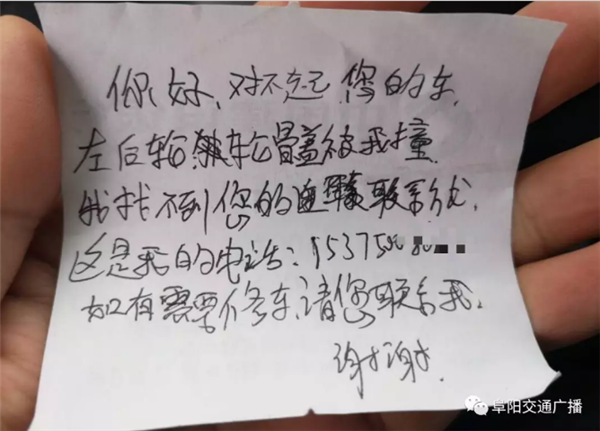 你好,对不起您的车,
左后轮轮骨盖被我撞
我找不到您的联系
这是我的电话:15375
如有需要修车,请您联系我,
谢谢.
阜阳交通广播